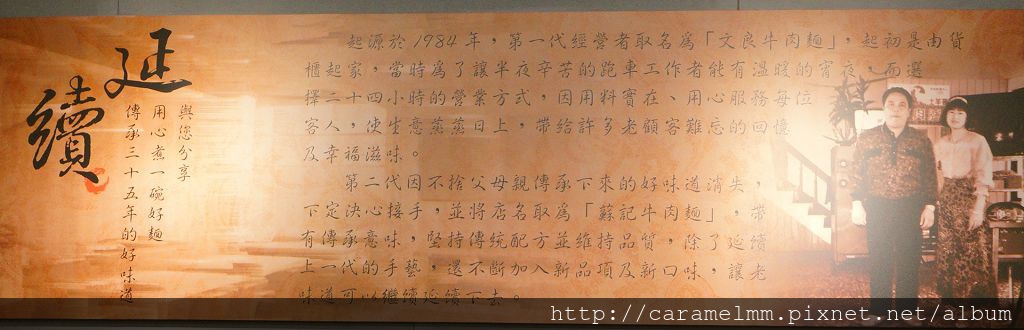 延續
與您分享
用心煮一碗好麵
傳承三十五年的好味道
起源於1984年，第一代經營者取名為「文良牛肉麵」，起初是由貨
櫃起家，當時為了讓半夜辛苦的跑車工作者能有溫暖的宵夜，而選
擇二十四小時的營業方式，因用料實在、用心服務每位
客人，使生意蒸蒸日上，帶給許多老顧客難忘的回憶
及幸福滋味。
第二代因不捨父母親傳承下來的好味道消失，
下定決心接手，並將店名取為「蘇記牛肉麵」，帶
有傳承意味，堅持傳統配方並維持品質，除了延續
上一代的手藝，還不斷加入新品項及新口味，讓老
味道可以繼續延續下去。
http://caramelmm.pixnet.net/album